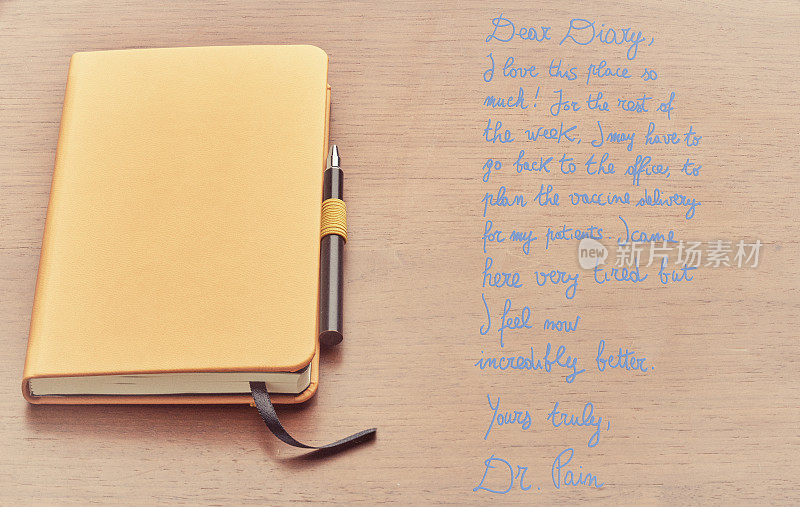 Dear Diary,
I love this place so
much! For the rest of
the week, I may have to
go back to the office, to
plan the vaccine delivery
for my patients. I came
here very tired but
I feel now
incredibly better.
Yours truly,
Dr. Pain
new 新图素材